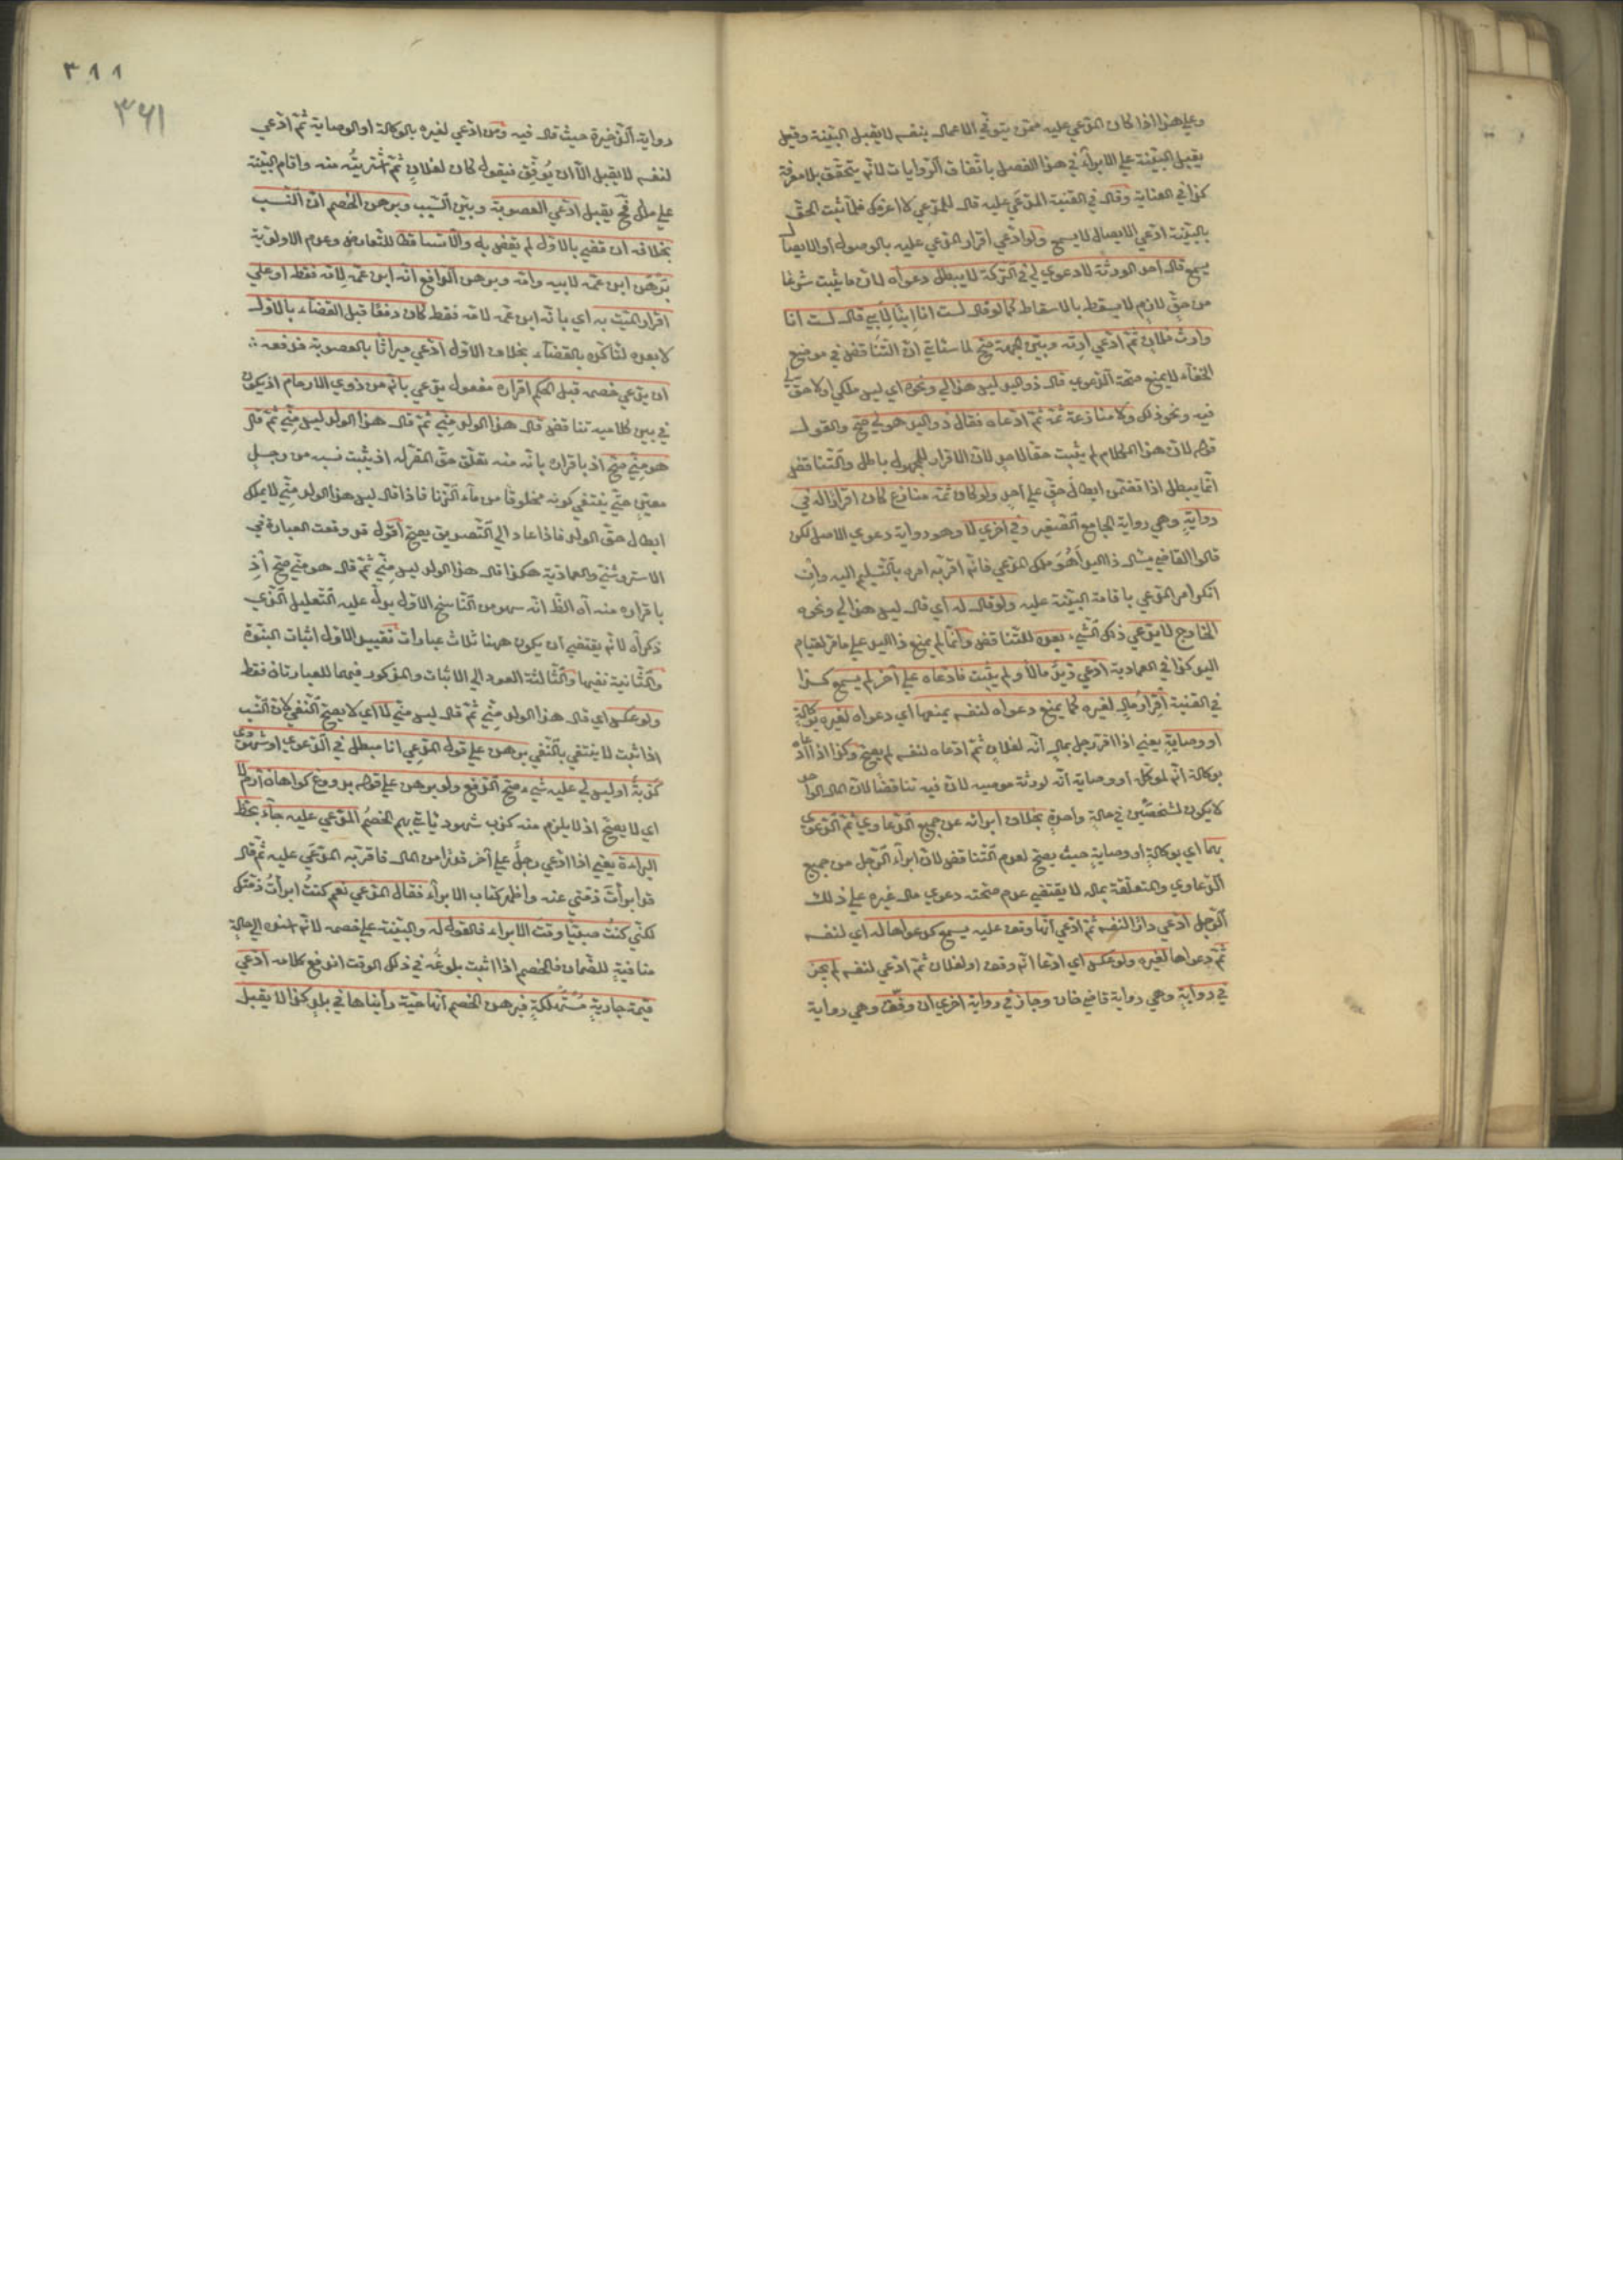 وعلي هذا اذا كان المدعي عليه ممن يتولي الاعمال بنفسه لا يقبل البينة وقيل
يقبل البينة علي الابراء في هذا الفصل باتفاق الروايات لانه يتحقق بلا معرفة
كذا في العناية وقال في القنية المدعي عليه قال للمدعي لا اعرفك فلما ثبت الحق
بالبينة ادعي الايصال لا يسمع ولو ادعي اقرار المدعي عليه بالوصول او الايصال
يسمع قال احد الورثة لا دعوي لي في التركة لا يبطل دعواه لان ما يثبت شرعا
من حق لازم لا يسقط بالاسقاط كما لو قال لست انا ابنا لابي قال لست انا
وارث فلان ثم ادعي ارثه وبين الجهة صح لما سياتي ان التناقض في موضع
الخفاء لا يمنع صحة الدعوي قال ذو اليد ليس هذا لي ونحوه اي ليس ملكي اولا حق لي
فيه ونحو ذلك ولا منازعة ثمة ثم ادعاه فقال ذو اليد هو لي صح والقول
قوله لان هذا الكلام لم يثبت حقا لاحد لان الاقرار للمجهول باطل والتناقض
انما يبطل اذا تضمن ابطال حق علي احد ولو كان ثمة منازع كان اقرارا له في
رواية وهي رواية الجامع الصغير وفي اخري لا وهو رواية دعوي الاصل لكن
قالوا القاضي يسال ذا اليد اهو ملك المدعي فان اقر به امره بالتسليم اليه وان
انكر امر المدعي باقامة البينة عليه ولو قال له اي قال ليس هذا لي ونحوه
الخارج لا يدعي ذلك الشيء بعده للتناقض وانما لم يمنع ذا اليد علي ما مر لقيام
اليد كذا في العمادية ادعي زيد مالا ولم يثبت فادعاه علي آخر لم يسمع كذا
في القنية اقرار مال لغيره كما يمنع دعواه لنفسه يمنعها اي دعواه لغيره بوكالة
او وصاية يعني اذا اقر رجل بمال انه لفلان ثم ادعاه لنفسه لم يصح وكذا اذا ادعاه
بوكالة انه لموكله او وصاية انه لورثة موصيه لان فيه تناقضا لان المال الواحد
لا يكون لشخصين في حالة واحدة بخلاف ابرائه عن جميع الدعاوي ثم الدعوي
بهما اي بوكالة او وصاية حيث يصح لعدم التناقض لان ابراء الرجل من جميع
الدعاوي والمتعلقة بماله لا يقتضي عدم صحته دعوي مال غيره علي ذلك
الرجل ادعي دارا لنفسه ثم ادعي انها وقف عليه يسمع كدعواها له اي لنفسه
ثم دعواها لغيره ولو عكس اي ادعا انه وقف او لفلان ثم ادعي لنفسه لم يجز
في رواية وهي رواية قاضي خان وجاز في رواية اخري ان وفق وهي رواية
٣١١
٣٦١
رواية الذخيرة حيث قال فيه ومن ادعي لغيره بالوكالة او الوصاية ثم ادعي
لنفسه لا يقبل الا ان يوفق فيقول كان لفلان ثم اشتريته منه واقام البينة
علي ذلك فح يقبل ادعي العصوبة وبين النسب وبرهن الخصم ان النسب
بخلافه ان قضي بالاول لم يقض به والا تساقطا للتعارض وعدم الاولوية
برهن ابن عمه لابيه وامه وبرهن الدافع انه ابن عمه لامه فقط او علي
اقرار الميت به اي بانه ابن عمه لامه فقط كان دفعا قبل القضاء بالاول
لا بعده لتاكده بالقضاء بخلاف الاول ادعي ميراثا بالعصوبة فدفعه
ان يدعي خصمه قبل الحكم اقراره مفعول يدعي بانه من ذوي الارحام اذ يكون
في بين كلاميه تناقض قال هذا الولد مني ثم قال هذا الولد ليس مني ثم قال
هو مني صح اذ باقراره بانه منه تعلق حق المقر له اذ يثبت نسبه من رجل
معين حتي ينتفي كونه مخلوقا من ماء الزنا فاذا قال ليس هذا الولد مني لا يملك
ابطال حق الولد فاذا عاد الي التصديق يصح اقول قد وقعت العبارة في
الاستروشنية والعمادية هكذا قال هذا الولد ليس مني ثم قال هو مني صح اذ
باقراره منه آه الظ انه سهو من الناسخ الاول يدل عليه التعليل الذي
ذكراه لانه يقتضي ان يكون ههنا ثلاث عبارات تفيد الاول اثبات البنوة
والثانية نفيها والثالثة العود الي الاثبات والمذكور فيهما العبارتان فقط
ولو عكس اي قال هذا الولد مني ثم قال ليس مني لا اي لا يصح النفي لان النسب
اذا ثبت لا ينتفي بالنفي برهن علي قول المدعي انا مبطل في الدعوي او شهودي
كذبة او ليس لي عليه شيء صح الدفع ولو برهن علي قوله بدروغ كواهان آرم لا
اي لا يصح اذ لا يلزم منه كذب شهود ياتي بهم الخصم المدعي عليه جاء بخط
البراءة يعني اذا ادعي رجل علي آخر قدرا من المال فاقر به المدعي عليه ثم قال
قد ابرأت ذمتي عنه واظهر كتاب الابراء فقال المدعي نعم كنت ابرأت ذمتك
لكني كنت صبيا وقت الابراء فالقول له والبينة علي خصمه لانه اسنده الي حالة
منافية للضمان فالخصم اذا اثبت بلوغه في ذلك الوقت اندفع كلامه ادعي
قيمة جارية مستهلكة فبرهن الخصم انها حية رأيناها في بلد كذا لا يقبل